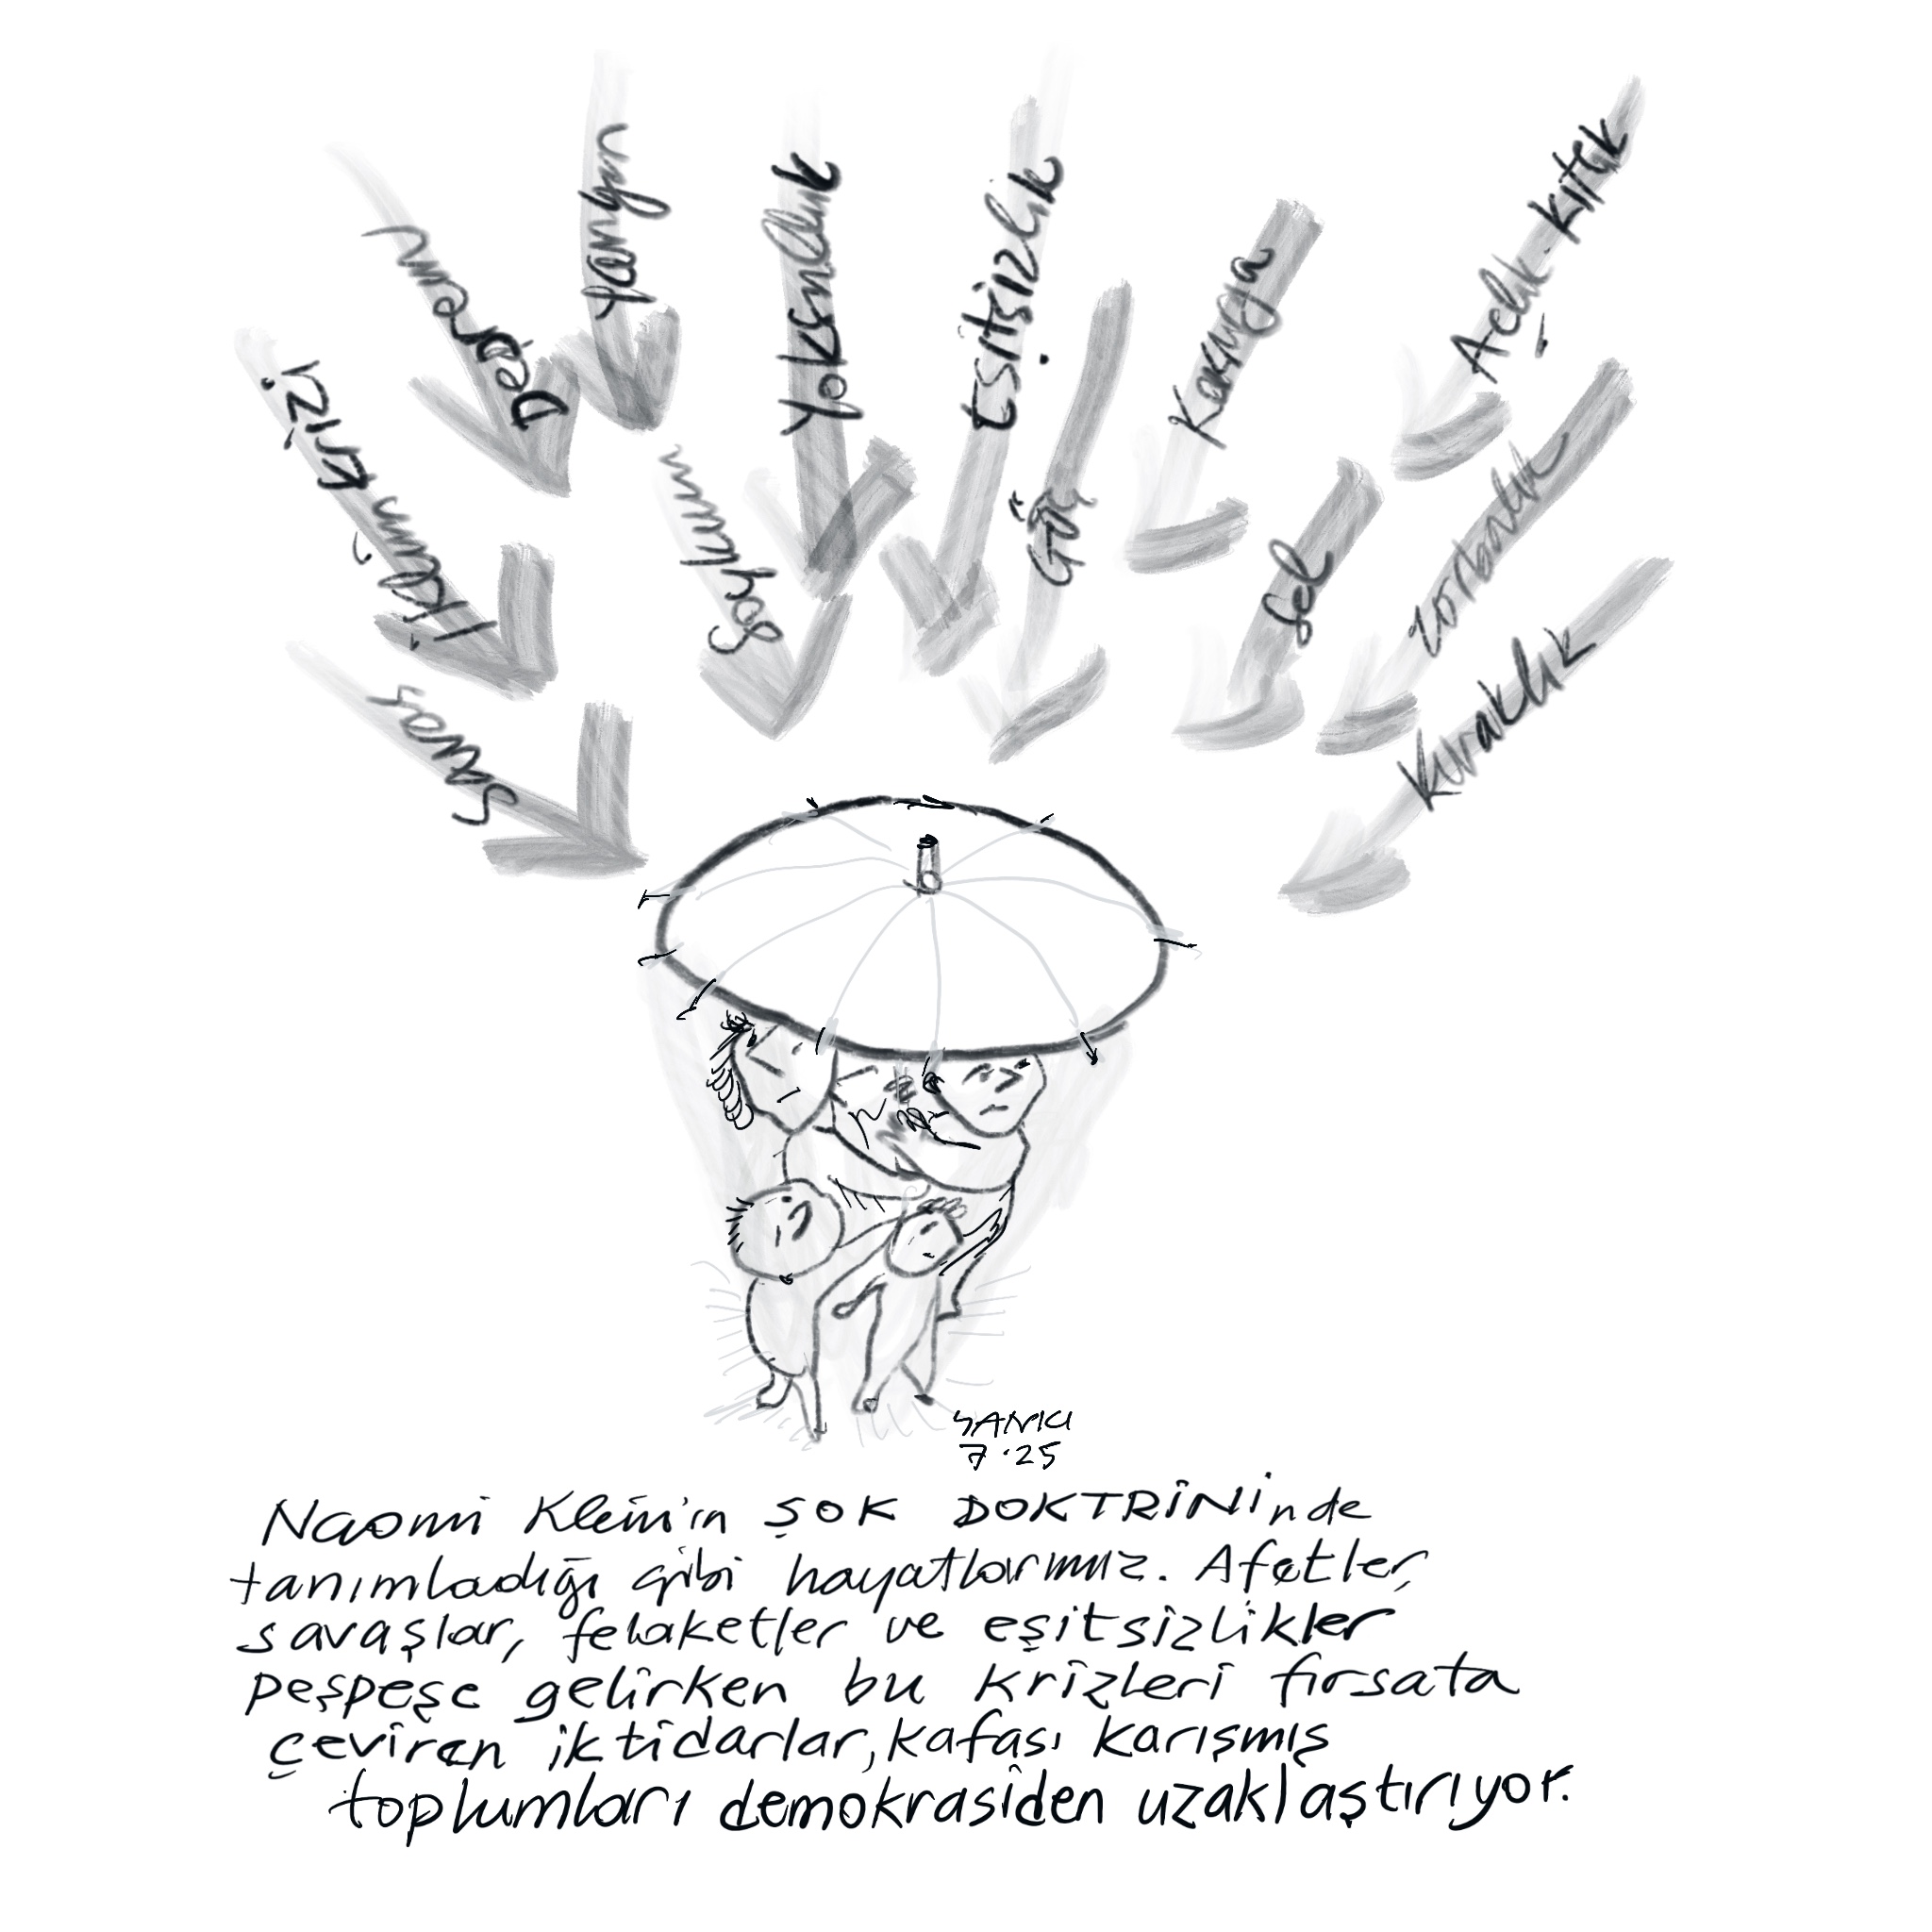 Yangın
Deprem
Yoksulluk
Eşitsizlik
Kasırga
Açlık-Kıtlık
İklim Krizi
Soykırım
Göç
Sel
Zorbalık
Savaş
Kuraklık
SANICI
7.25
Naomi Klein'ın ŞOK DOKTRİNİnde
tanımladığı gibi hayatlarımız. Afetler,
savaşlar, felaketler ve eşitsizlikler
peşpeşe gelirken bu krizleri fırsata
çeviren iktidarlar, kafası karışmış
toplumları demokrasiden uzaklaştırıyor.